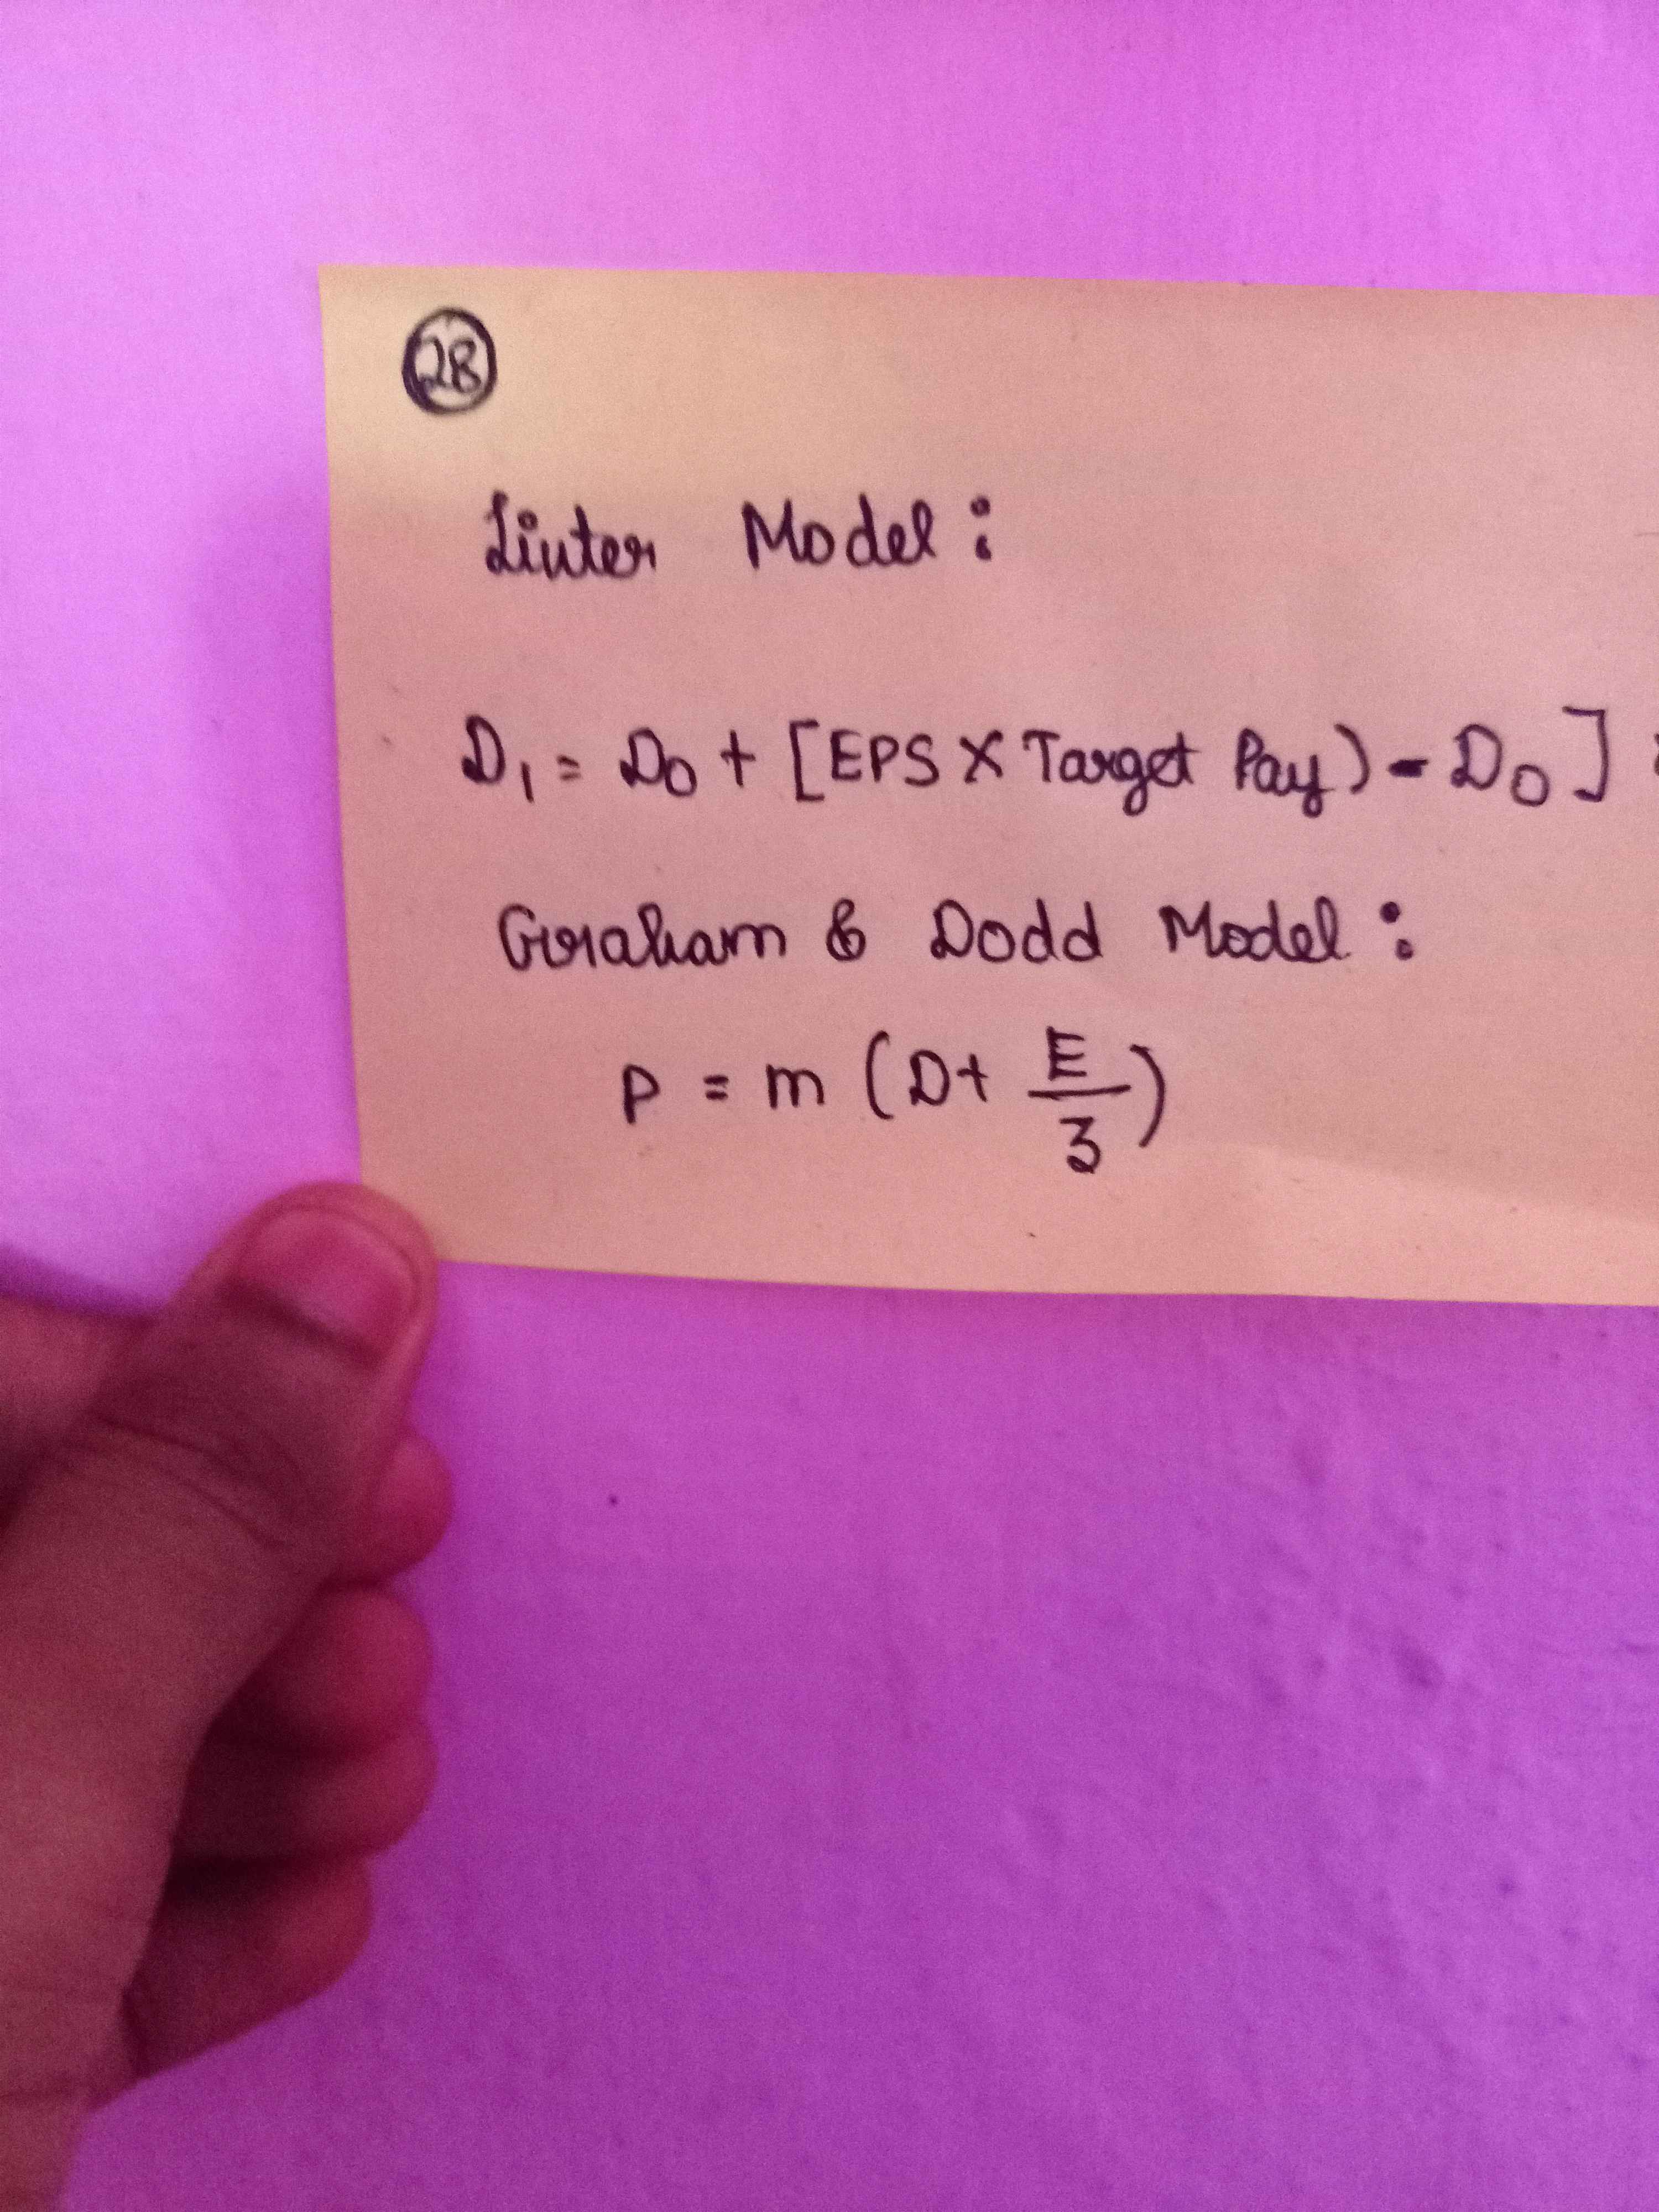 28
Linter Model :
D₁ = D₀ + [EPS X Target Pay) - D₀]
Graham & Dodd Model :
P = m (D + E/3)